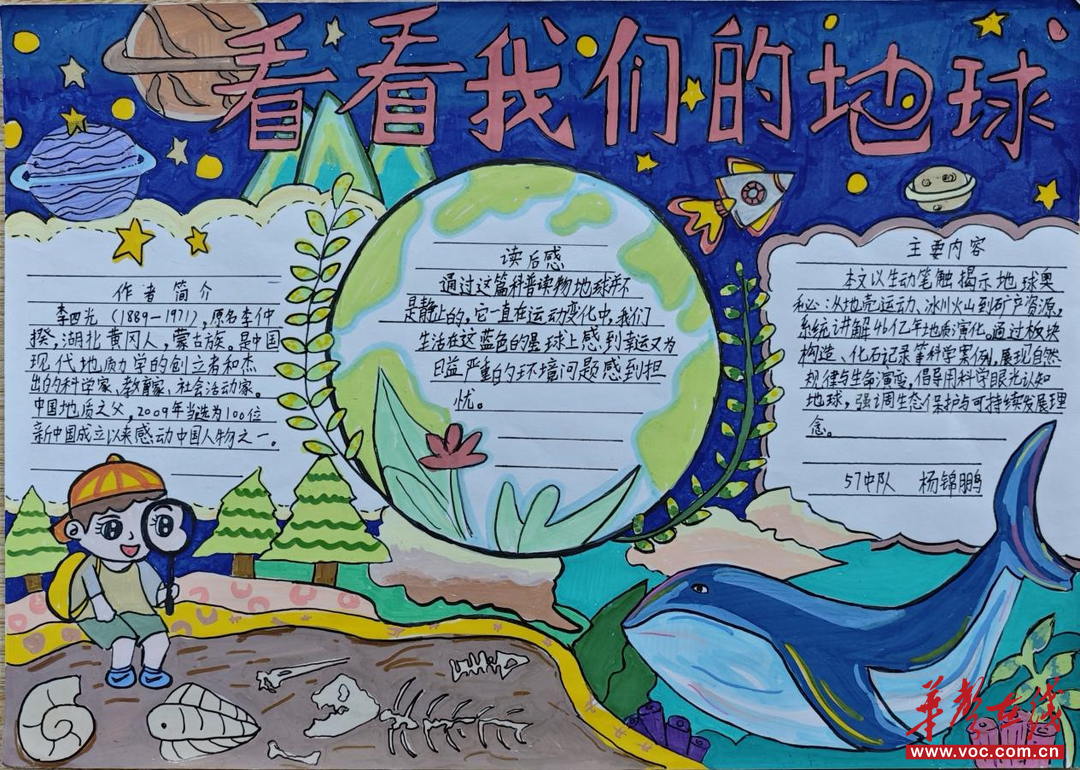 看看我们的地球
作者简介
李四光（1889—1971），原名李仲
揆，湖北黄冈人，蒙古族。是中国
现代地质力学的创立者和杰
出的科学家、教育家、社会活动家。
中国地质之父，2009年当选为100位
新中国成立以来感动中国人物之一。
读后感
通过这篇科普读物地球并不
是静止的，它一直在运动变化中，我们
生活在这蓝色的星球上感到幸运又为
日益严重的环境问题感到担
忧。
主要内容
本文以生动笔触揭示地球奥
秘：从地壳运动、冰川火山到矿产资源，
系统讲解46亿年地质演化。通过板块
构造、化石记录等科学案例，展现自然
规律与生命演变，倡导用科学眼光认知
地球，强调生态保护与可持续发展理
念。
57中队 杨锦鹏
华声在线
www.voc.com.cn